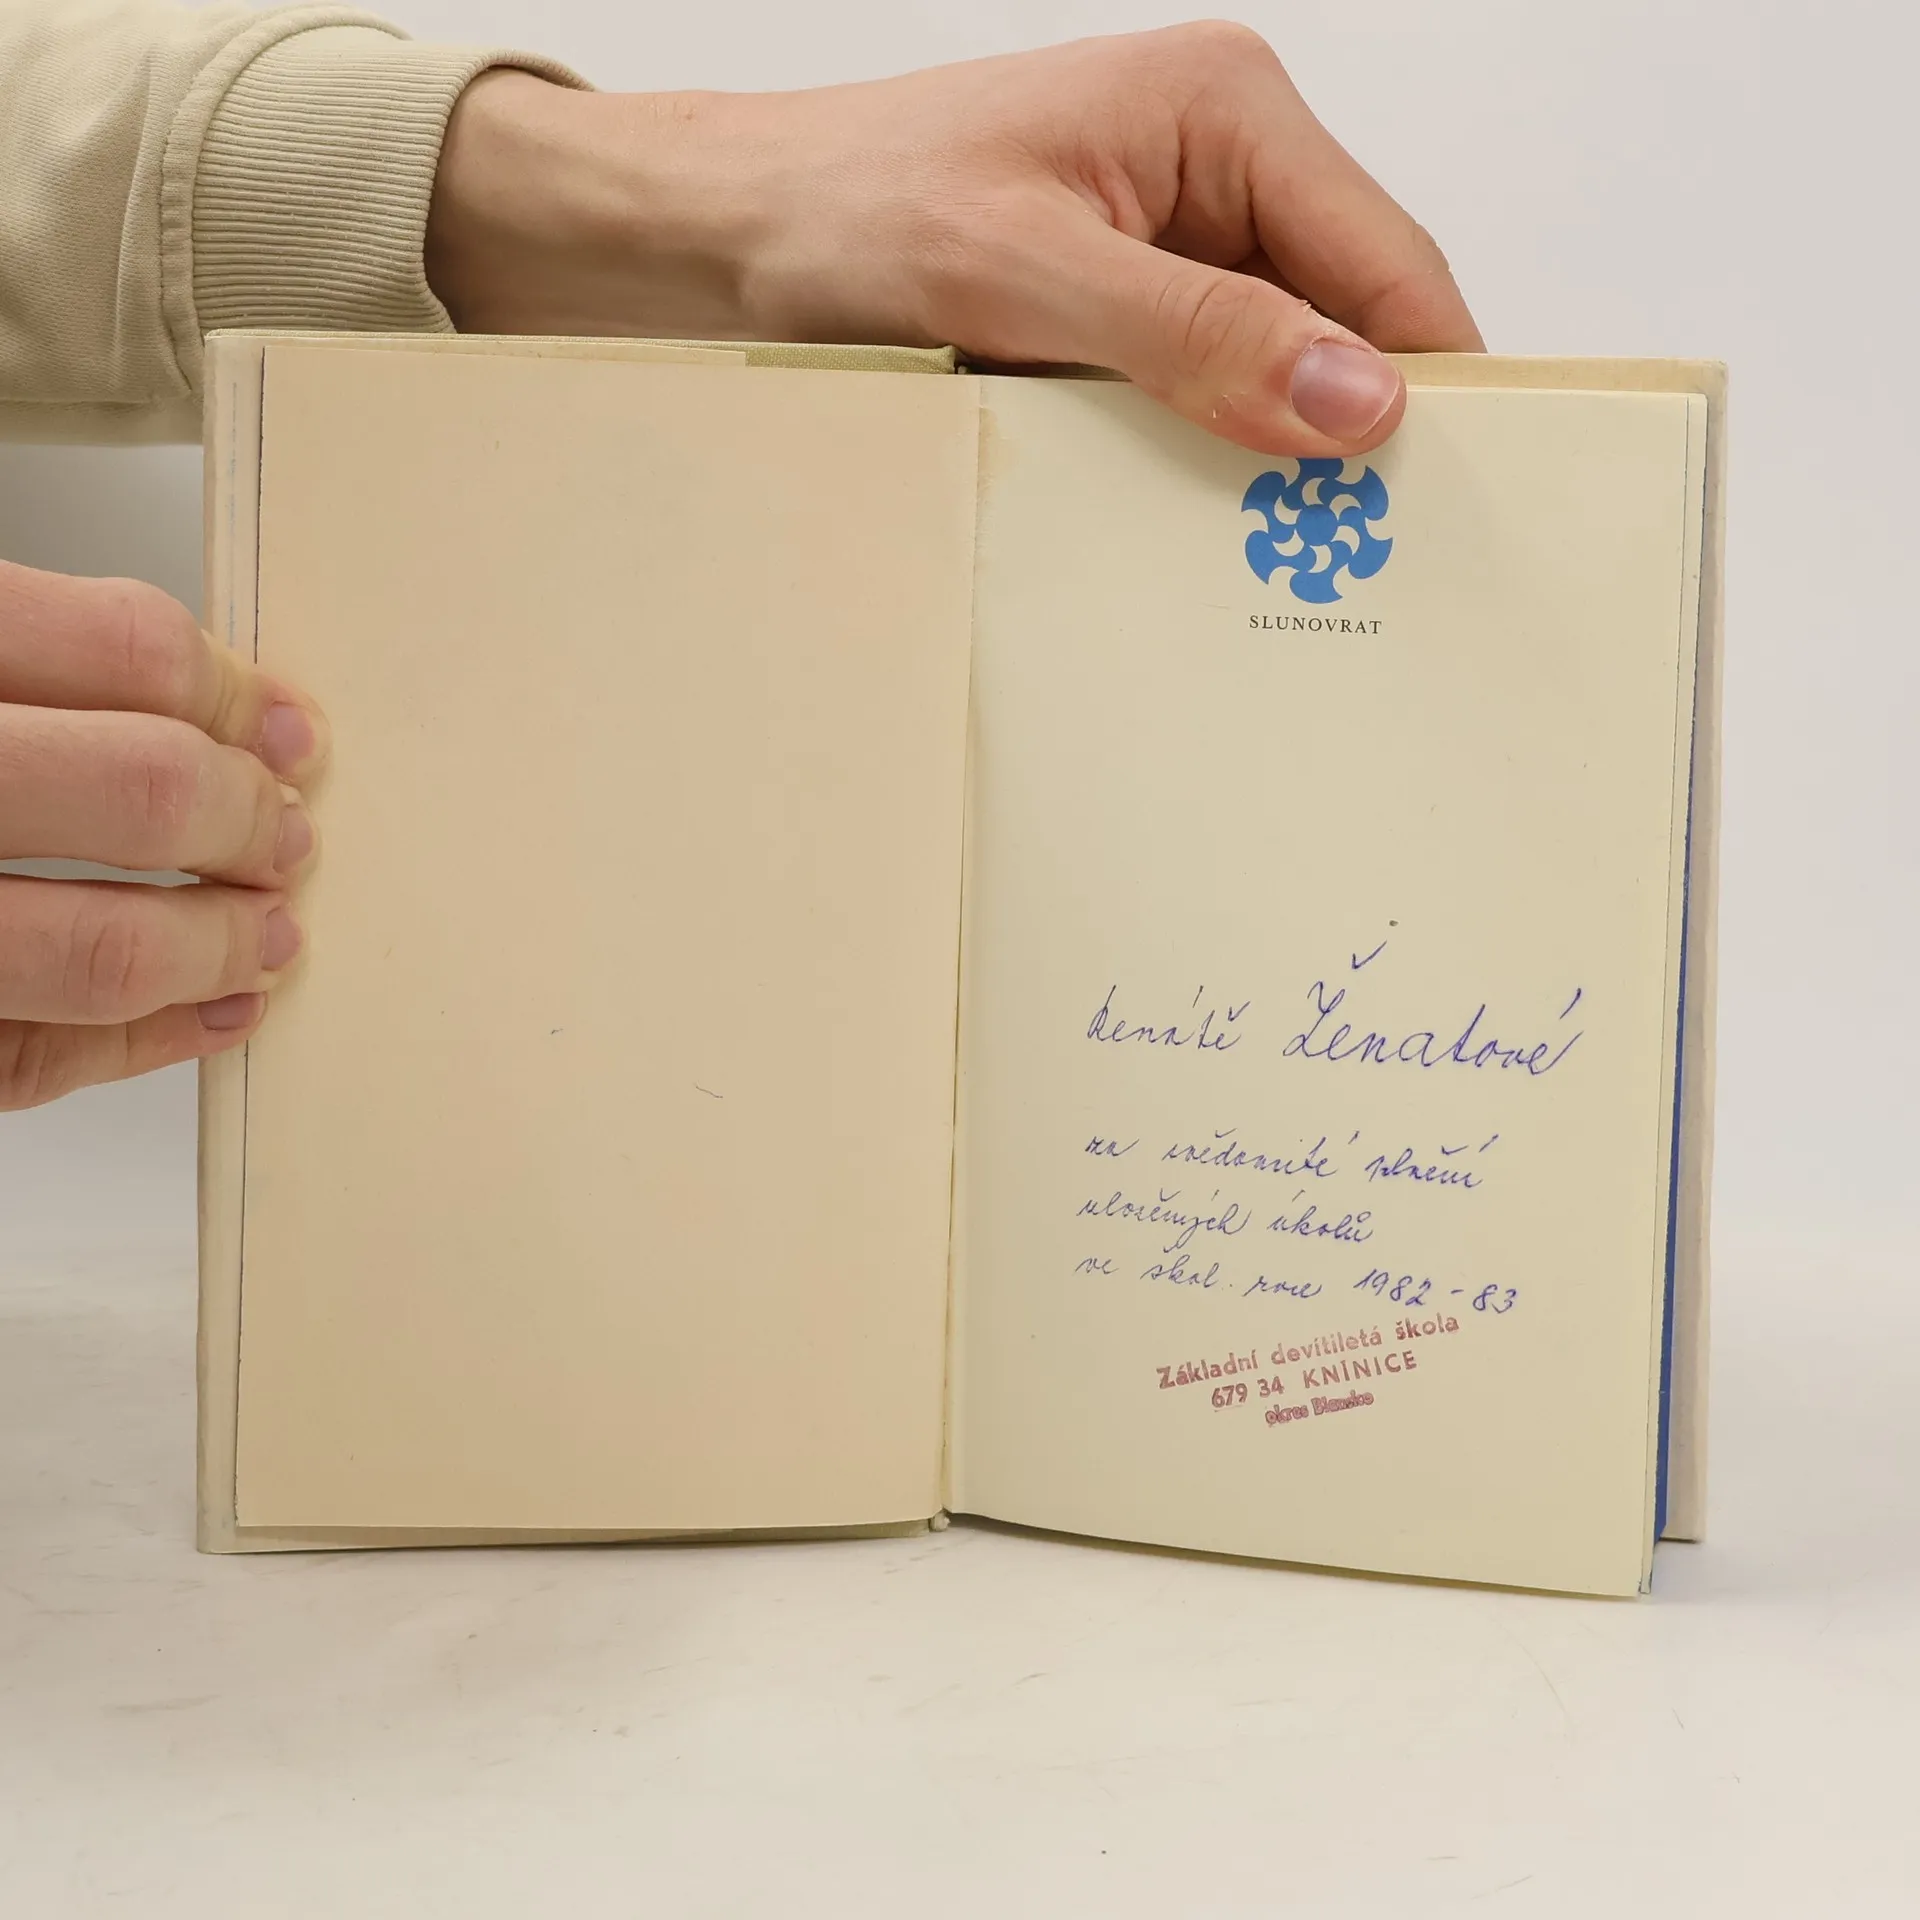 SLUNOVRAT
Renátě Ženatové
za svědomité plnění
uložených úkolů
ve škol. roce 1982-83
Základní devítiletá škola
679 34 KNÍNICE
okres Blansko